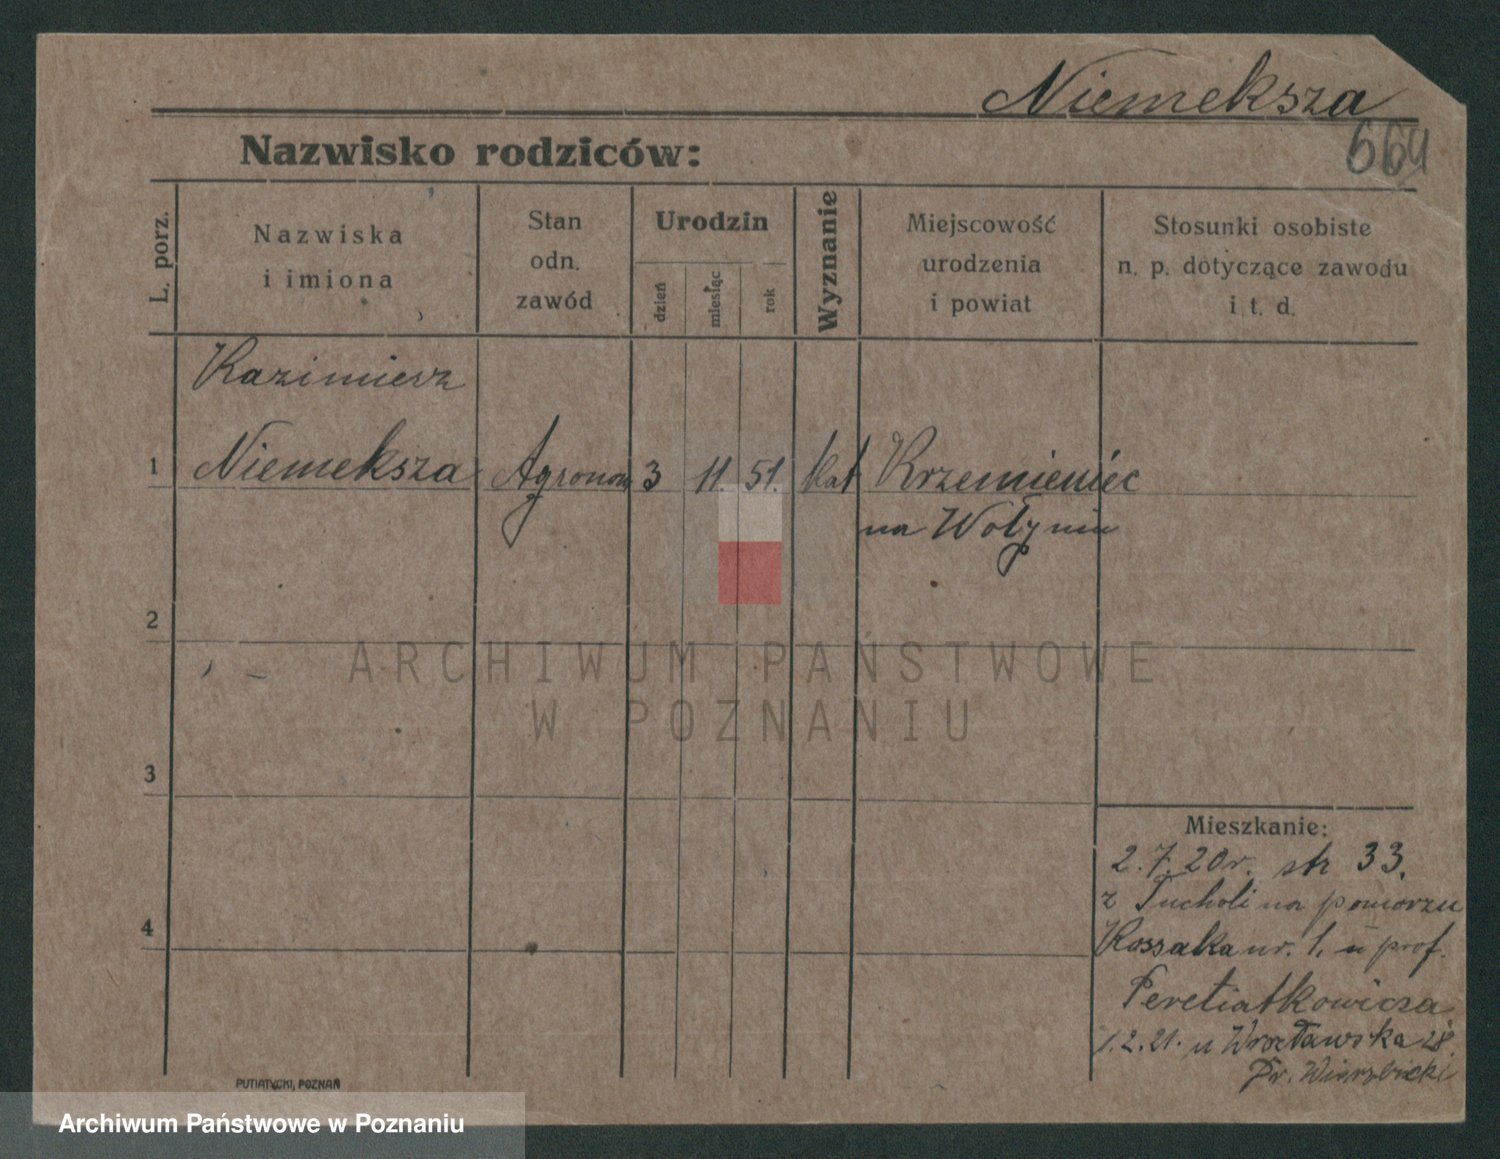 Niemeksza
664
Nazwisko rodziców:
L. porz.
Nazwiska
i imiona
Stan
odn.
zawód
Urodzin
dzień
miesiąc
rok
Wyznanie
Miejscowość
urodzenia
i powiat
Stosunki osobiste
n. p. dotyczące zawodu
i t. d.
Kazimierz
1 Niemeksza Agronom 3 11. 51. kat Krzemieniec
na Wołyniu
2
ARCHIWUM PAŃSTWOWE
W POZNANIU
3
4
Mieszkanie:
2.7.20r. str 33.
z Tucholi na pomorzu
Kossaka nr. 1. u prof.
Peretiatkowicza
1.2.21. u Wrocławska 28
Dr. Wierzbicki
PUTIATYCKI, POZNAŃ
Archiwum Państwowe w Poznaniu